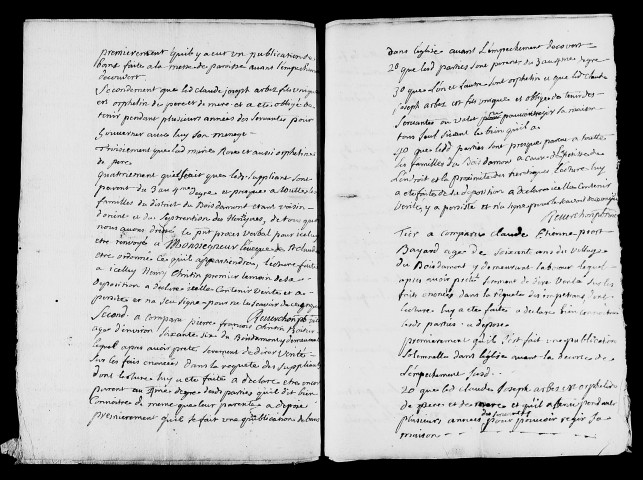 premierement quil y a eut vn publication de
bans faite a la messe de paroisse auant l'empechement
decouvert
Secondement que led claude joseph arbez fils vnique
est orphelin de pere et de mere et a ete oblige de
tenir pendant plusieurs années des servantes pour
gouverner avec luy son menage
Troisiement que lad marie Rose et aussi orpheline
de pere
quatriement quil scait que led suppliant sont
parent du 3 au 4me degre et presque a toutes les
familles du district du Boisdamont etant voisin
d'orient et du septentrion des de tout quoy
nous avons dressé le put proces verbal pour icelluy
etre renvoyé a Monseigneur l'eveque de St claude
etre ordonné ce quil appartiendra, lecture faite
a icelluy premier temoin de sa
deposition a declare icelle contenir verité et a
persisté et na signe pour ne le scavoir de ce enquis
Second a comparu pierre françois
agé d'environ soixante dix du Boisdamont y demeurant
lequel apres avoir preté serment de dire verité
Sur les faits enoncées dans la requete des suppliant
dont lecture luy a ete faite a declare etre oncore
parent au 4me degre desd parties quil dit bien
connoitre de meme que leur parente a deposé
premierement quil se fait vne publication de bans
dans leglise auant l'empechement decouvert
2o que lesd parties sont parens du 3 au 4me degre
3o que l'un et l'autre sont orphelin et que led claude
joseph arbez est fils vnique et obligé de tenir des
servantes ou valet pour pouvoir regir sa maison
tout seul
4o que lesd parties sont presque parens a toutte
les familles du Boisdamont a cause de la petitesse de
lendroit et la proximité des lecture luy
a ete faite de sa deposition a declare icelle contenir
verité y a persisté et na signe pour le scavoir de ce enquis
Tiers a comparu claude Etienne
Bayard agé de soixant ans du village
du Boisdamont y demeurant laboureur lequel
apres avoir preté serment de dire verité sur les
faits enoncés dans la requete des impetrans, dont
lecture luy a ete faite a declare bien connoitre
les parties a deposé
premierement quil s'est fait vne publication
Solennelle dans leglise avant la decouverte de
l'empechement susd
2o que led claude joseph arbez est orphelin
de pere et de mere et quil a tenu pendant
plusieurs années des servantes pour pouvoir regir sa
maison